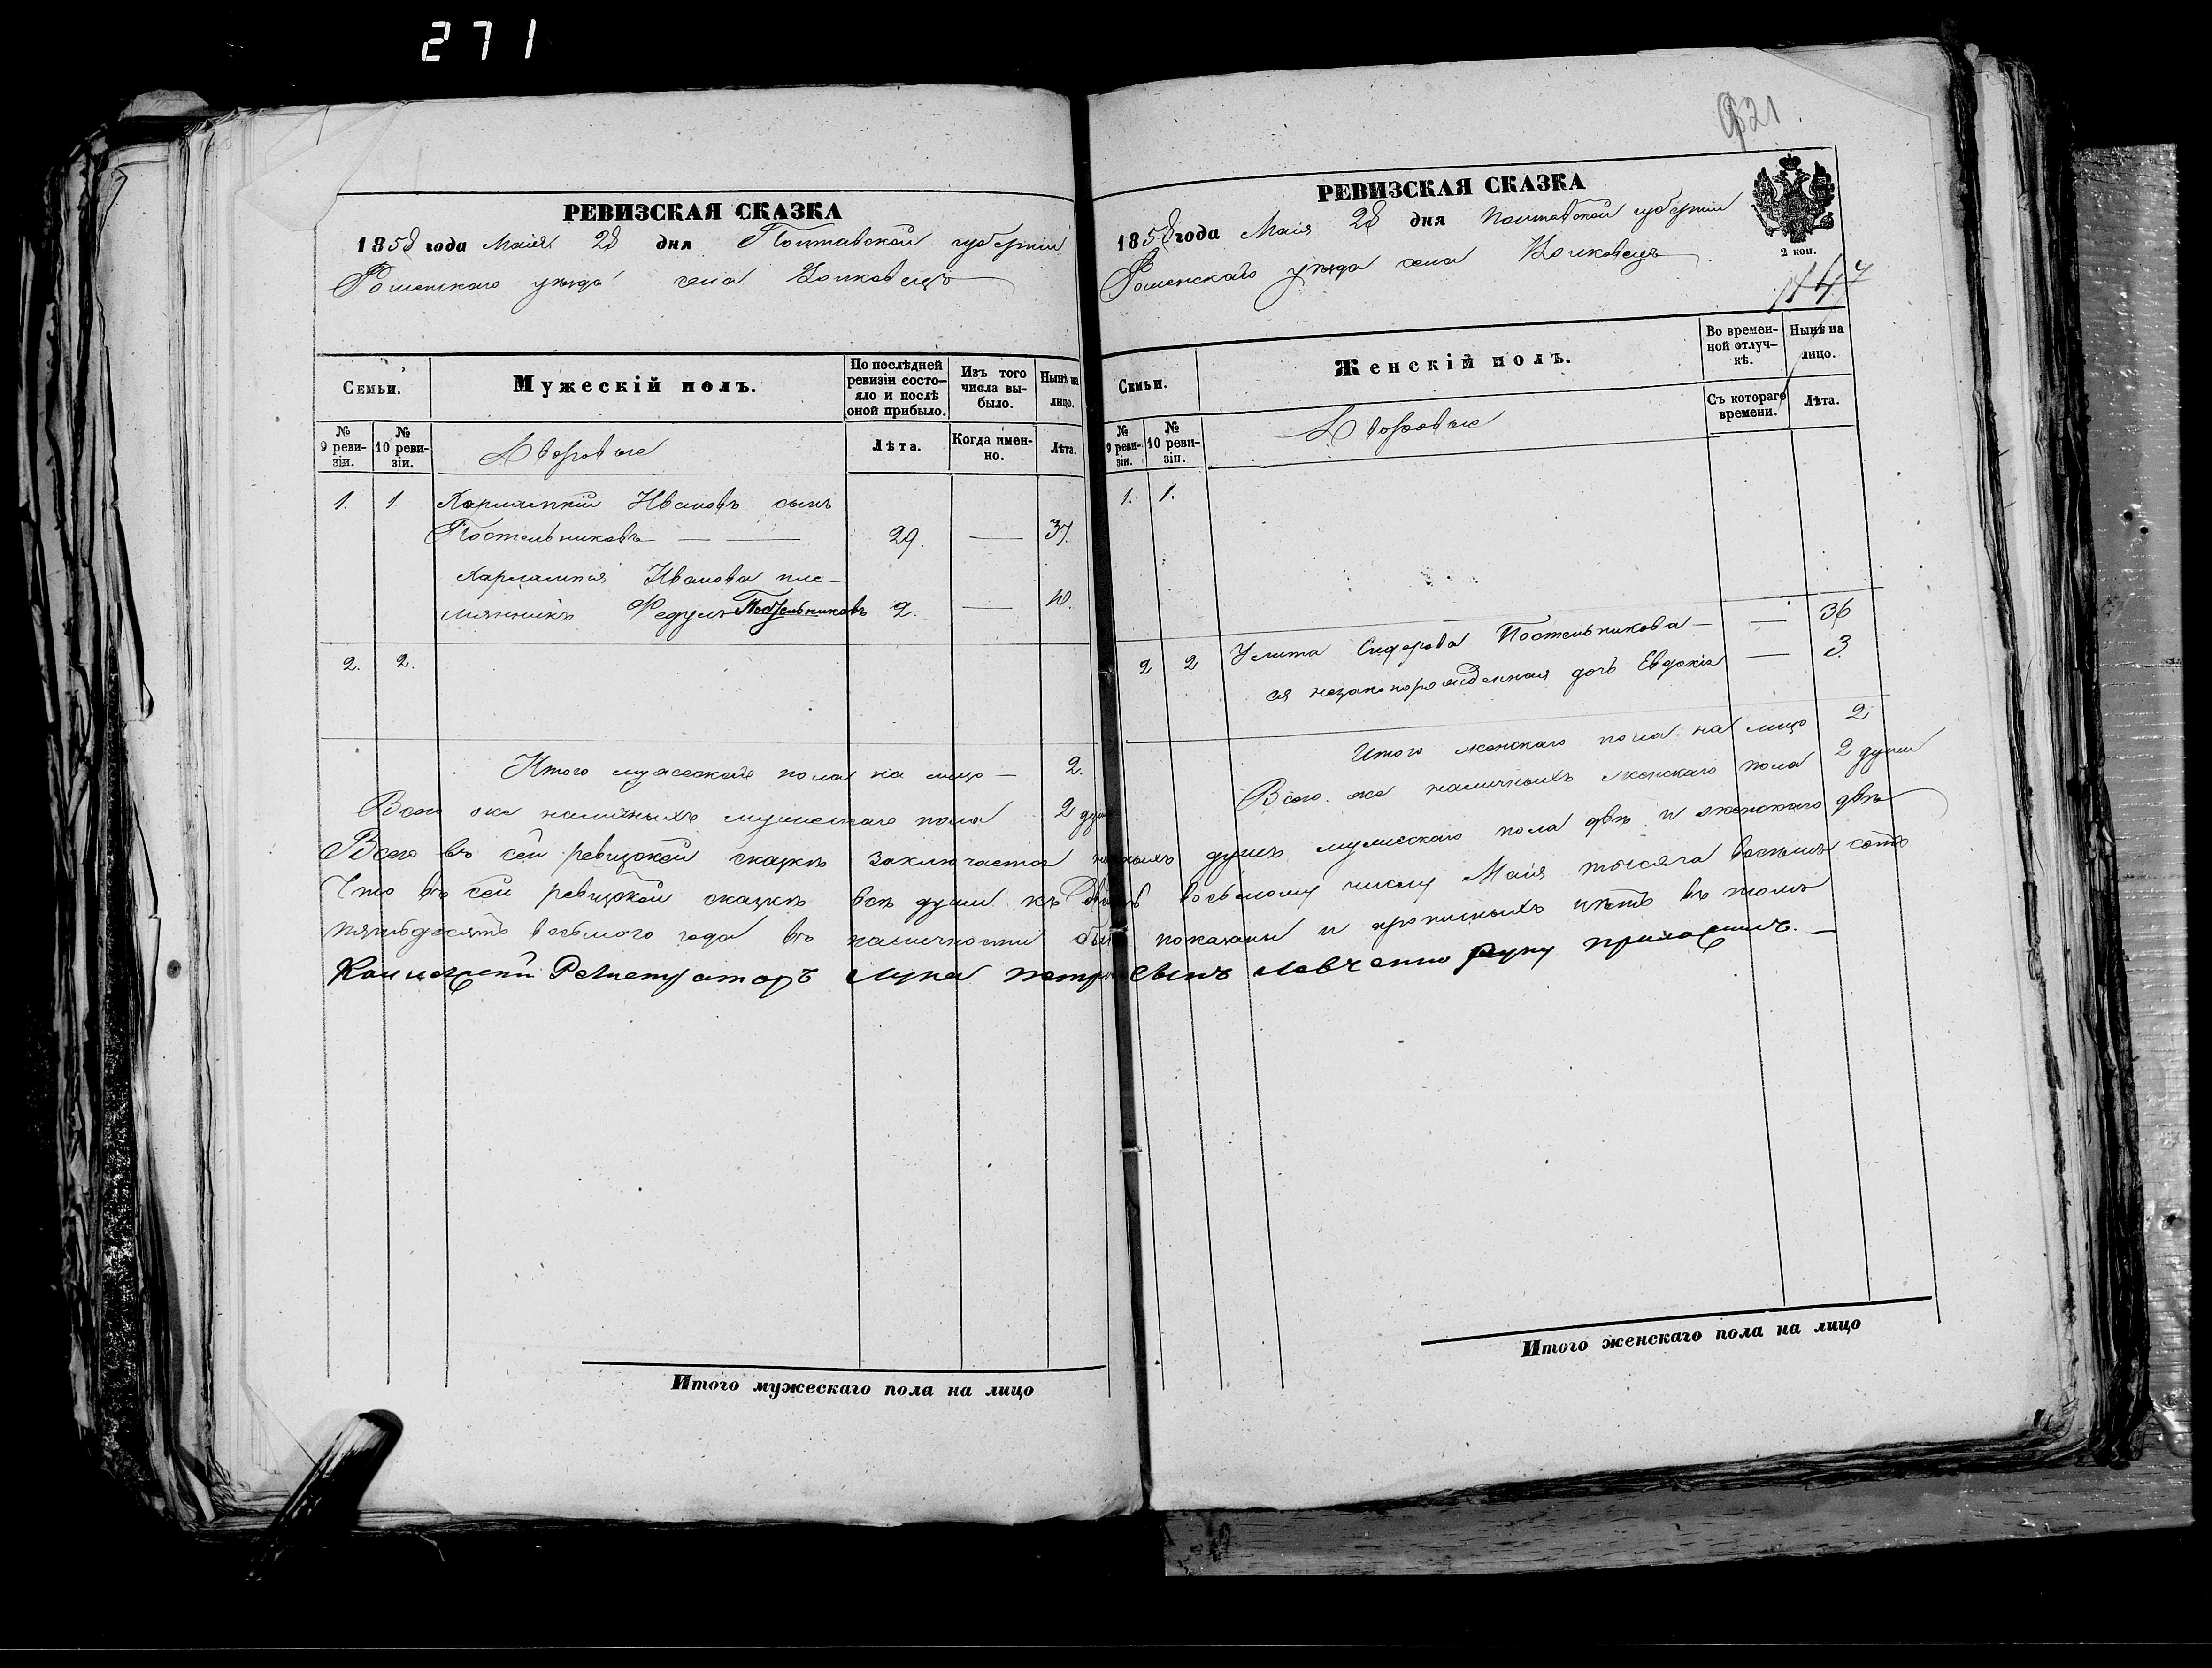 271
РЕВИЗСКАЯ СКАЗКА
1858 года Маія 28 дня Полтавской губерніи
Роменскаго уѣзда села Волковецъ
Семьи.
Мужескій полъ.
По послѣдней ревизіи состояло и послѣ оной прибыло.
Изъ того числа выбыло.
Нынѣ на лицо.
№ 9 ревизіи.
№ 10 ревизіи.
Дворовые
Лѣта.
Когда именно.
Лѣта.
1. 1 Харлампій Ивановъ сынъ
Постельниковъ — — 29. — 37.
Харлампія Иванова пле-
мянникъ Федулъ Постельниковъ 2. — 10.
2. 2.
Итого мужескаго пола на лицо — 2.
Всего же наличныхъ мужескаго пола 2 души
921
РЕВИЗСКАЯ СКАЗКА
1858 года Маія 28 дня Полтавской губерніи
2 коп.
Роменскаго уѣзда села Волковецъ
1147
Семьи.
Женскій полъ.
Во временной отлучкѣ.
Нынѣ на лицо.
№ 9 ревизіи.
№ 10 ревизіи.
Дворовые
Съ котораго времени.
Лѣта.
1. 1.
2 2 Улита Сидорова Постельникова — — 36
ея незаконорожденная дочь Евдокія — 3.
Итого женскаго пола на лицо 2
Всего же наличныхъ женскаго пола 2 души
Всего въ сей ревизской сказкѣ заключается душъ мужескаго пола двѣ и женскаго двѣ
Что въ сей ревизской сказкѣ всѣ души къ двадцать восьмому числу Маія тысяча восемь сотъ
пятьдесятъ восьмого года въ наличности бывшія показаны и прописныхъ нѣтъ въ томъ
Коллежскій Регистраторъ Лука Петровъ сынъ Левченко руку приложилъ. —
Итого мужескаго пола на лицо
Итого женскаго пола на лицо